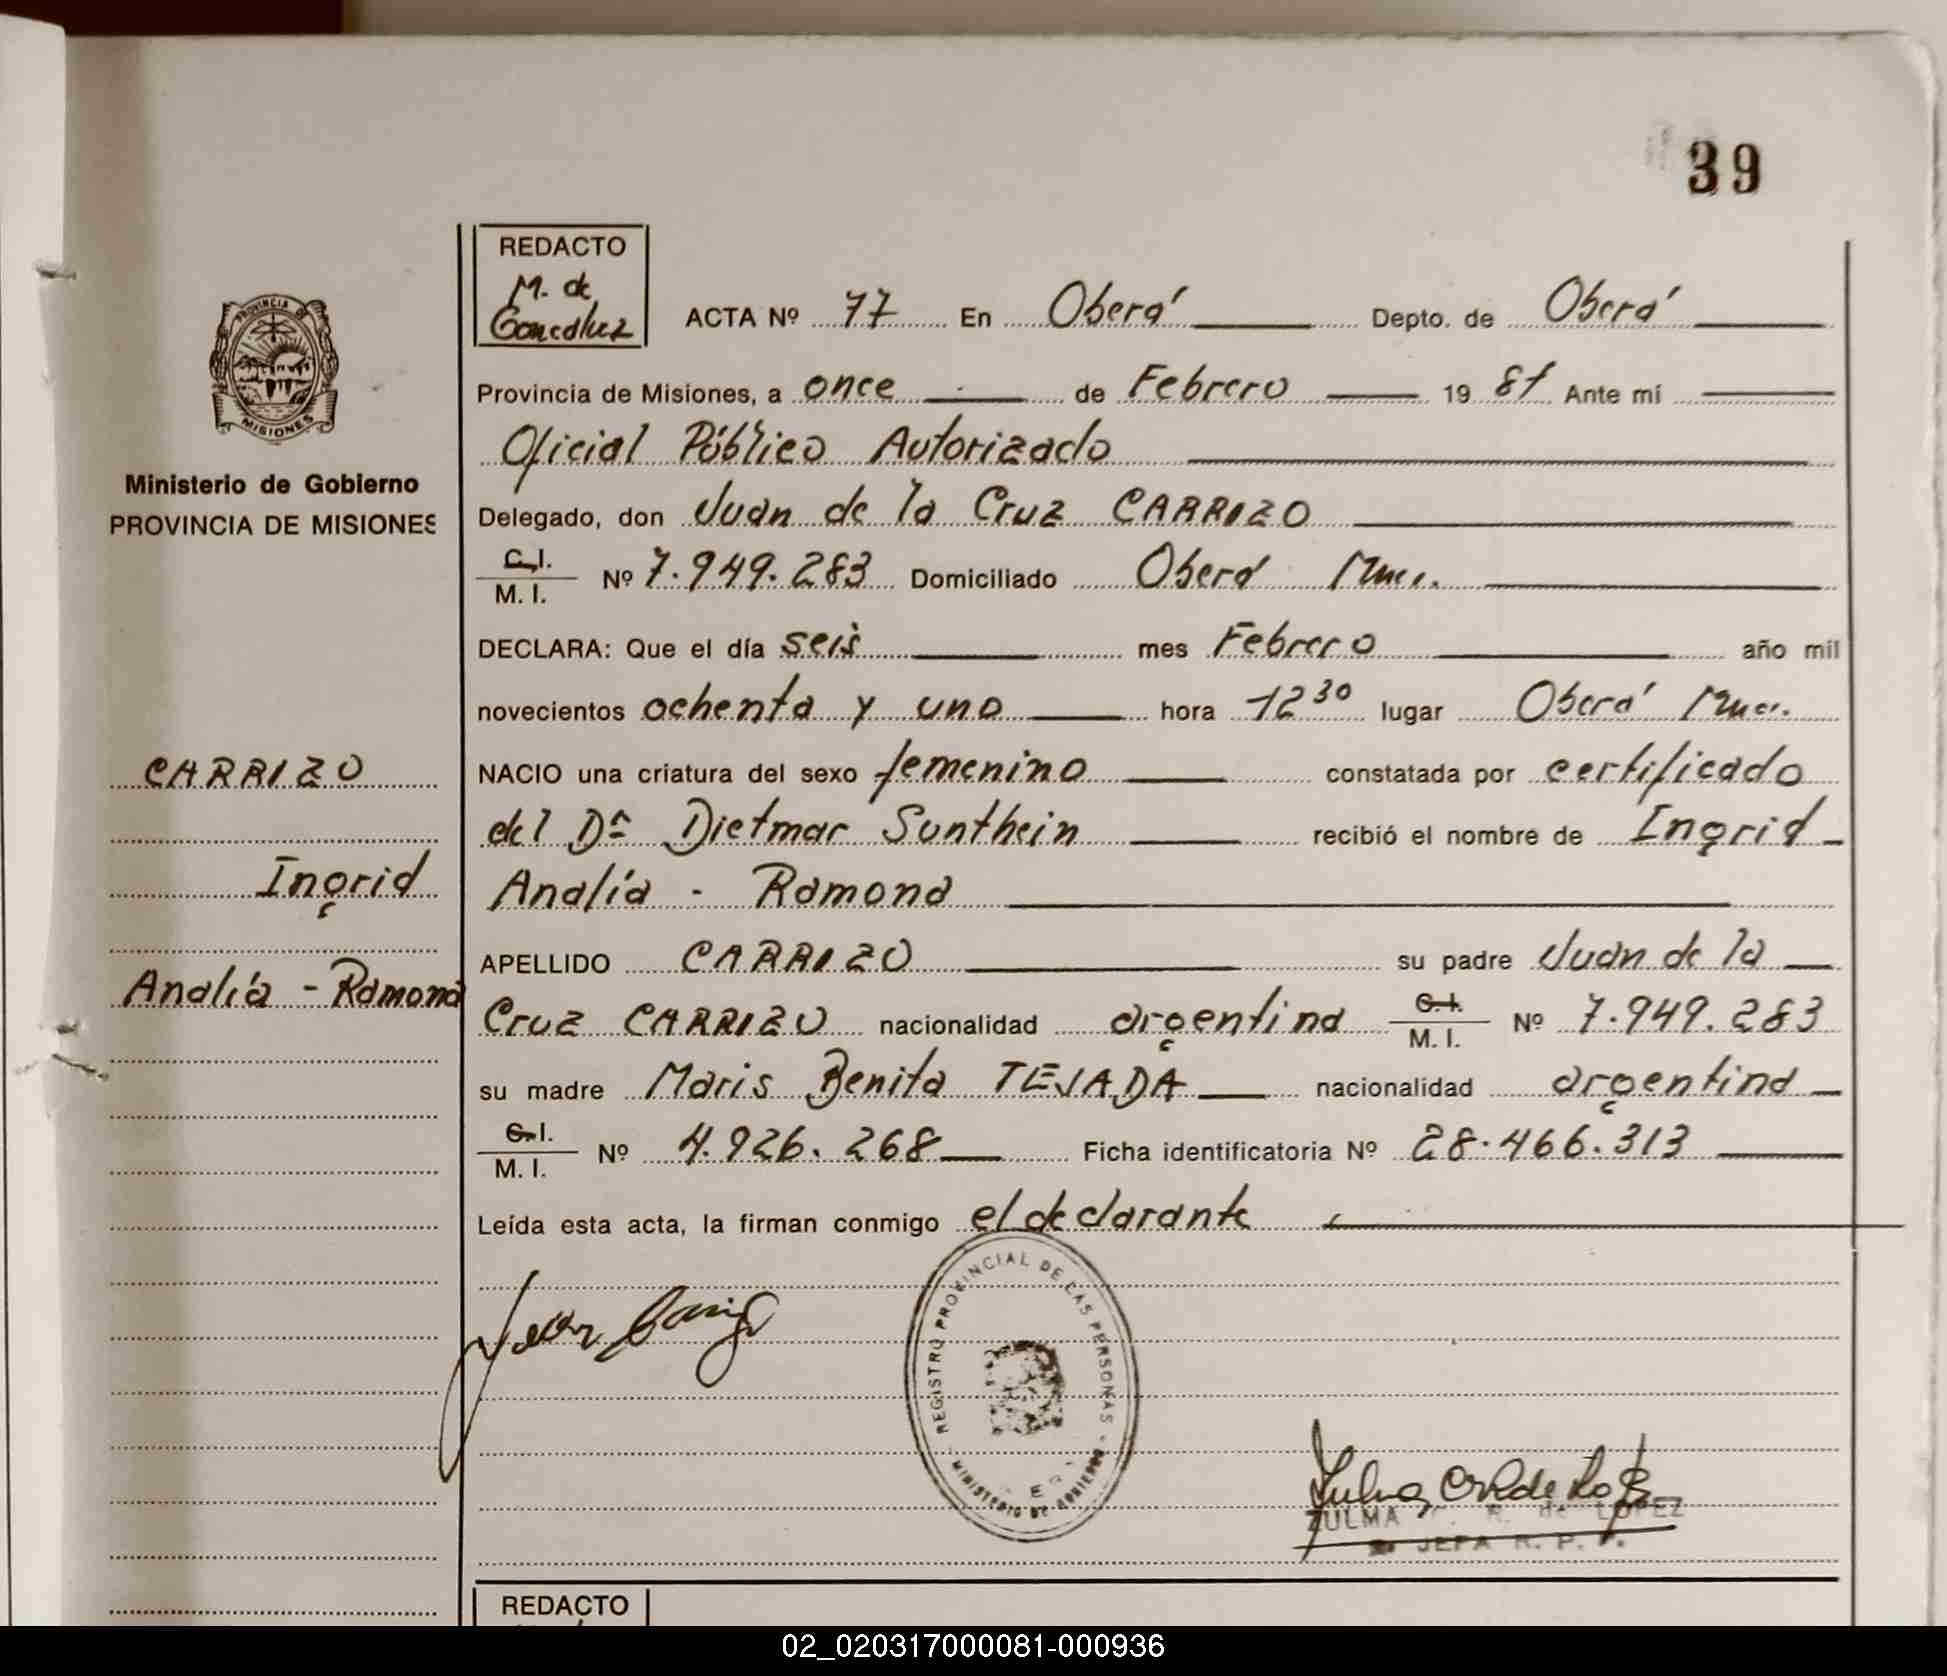 39
REDACTO
M. de
Goncalvez
ACTA Nº 77 En Oberá Depto. de Oberá
PROVINCIA DE
MISIONES
Provincia de Misiones, a once de Febrero 19 81 Ante mí
Oficial Público Autorizado
Ministerio de Gobierno
PROVINCIA DE MISIONES
Delegado, don Juan de la Cruz CARRIZO
C.I.
M. I. Nº 7.949.283 Domiciliado Oberá Mnes.
DECLARA: Que el día seis mes Febrero año mil
novecientos ochenta y uno hora 12 30 lugar Oberá Mnes.
CARRIZO
NACIO una criatura del sexo femenino constatada por certificado
del Dr Dietmar Sunthein recibió el nombre de Ingrid
Ingrid
Analía - Ramona
APELLIDO CARRIZO su padre Juan de la
Analía - Ramona
Cruz CARRIZO nacionalidad argentina C.I. M. I. Nº 7.949.283
su madre Maris Benita TEJADA nacionalidad argentina
C.I.
M. I. Nº 4.926.268 Ficha identificatoria Nº 28.466.313
Leída esta acta, la firman conmigo el declarante
REGISTRO PROVINCIAL DE LAS PERSONAS
MINISTERIO DE GOBIERNO
ZULMA R. de LOPEZ
JEFA R. P. P.
REDACTO
02_020317000081-000936